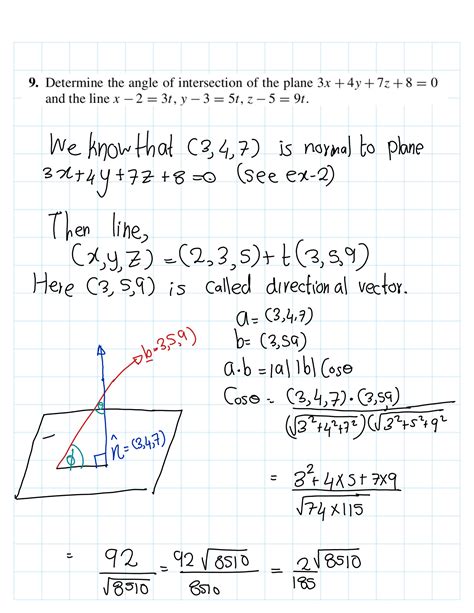 9. Determine the angle of intersection of the plane 3x + 4y + 7z + 8 = 0
and the line x − 2 = 3t, y − 3 = 5t, z − 5 = 9t.
We know that (3,4,7) is normal to plane
3x+4y+7z+8=0 (see ex-2)
Then line,
(x,y,z) = (2,3,5) + t(3,5,9)
Here (3,5,9) is called directional vector.
a = (3,4,7)
b = (3,59)
a·b = |a| |b| Cosθ
Cosθ = (3,4,7)·(3,59) / (√3²+4²+7²)(√3²+5²+9²
b=3,5,9)
n̂=(3,4,7)
ϕ
= 3²+4×5+7×9 / √74×115
= 92/√8510 = 92√8510/8510 = 2√8510/185